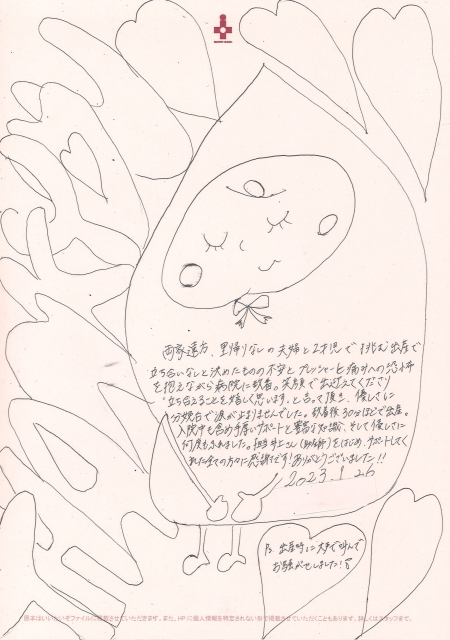 両家遠方、里帰りなしの夫婦と2才児で挑む出産で
立ち合いなしと決めたものの不安とプレッシャーと痛みへの恐怖
を抱えながら病院に到着。笑顔で出迎えてくださり
"立ち合えることを嬉しく思います。"と言って頂き、優しさに
分娩台で涙が止まりませんでした。到着後30分ほどで出産。
入院中も含め手厚いサポートと豊富な知識、そして優しさに
何度もふれました。担当 さん(助産師)をはじめ、サポートしてく
れた全ての方々に感謝です!ありがとうございました!!
2023.1.26
P.S. 出産時に大声で叫んで
お騒がせしました!
原本はいいたいぞファイルに掲載させていただきます。また、HPに個人情報を特定されない形で掲載させていただくこともあります。詳しくはスタッフまで。